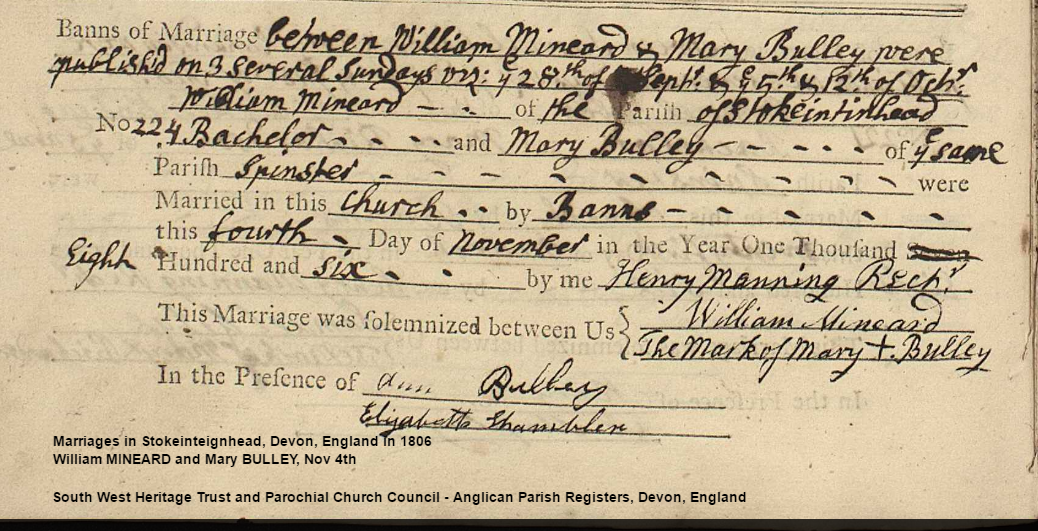 Banns of Marriage between William Mineard & Mary Bulley were
publish'd on 3 Several Sundays viz: ye 28th of Sepr. & ye 5th & 12th of Octr.
William Mineard - - of the Parish of Stokeintinhead
No 224 Bachelor - - - - and Mary Bulley - - - - - of ye same
Parish Spinster - - - - - - - - - - were
Married in this Church - - by Banns - - - - - -
this fourth - Day of November in the Year One Thousand Seven
Eight Hundred and six - - by me Henry Manning Rectr
This Marriage was solemnized between Us { William Mineard
The Mark of Mary +. Bulley
In the Presence of Ann Bulley
Elizabeth Shambler
Marriages in Stokeinteignhead, Devon, England in 1806
William MINEARD and Mary BULLEY, Nov 4th
South West Heritage Trust and Parochial Church Council - Anglican Parish Registers, Devon, England